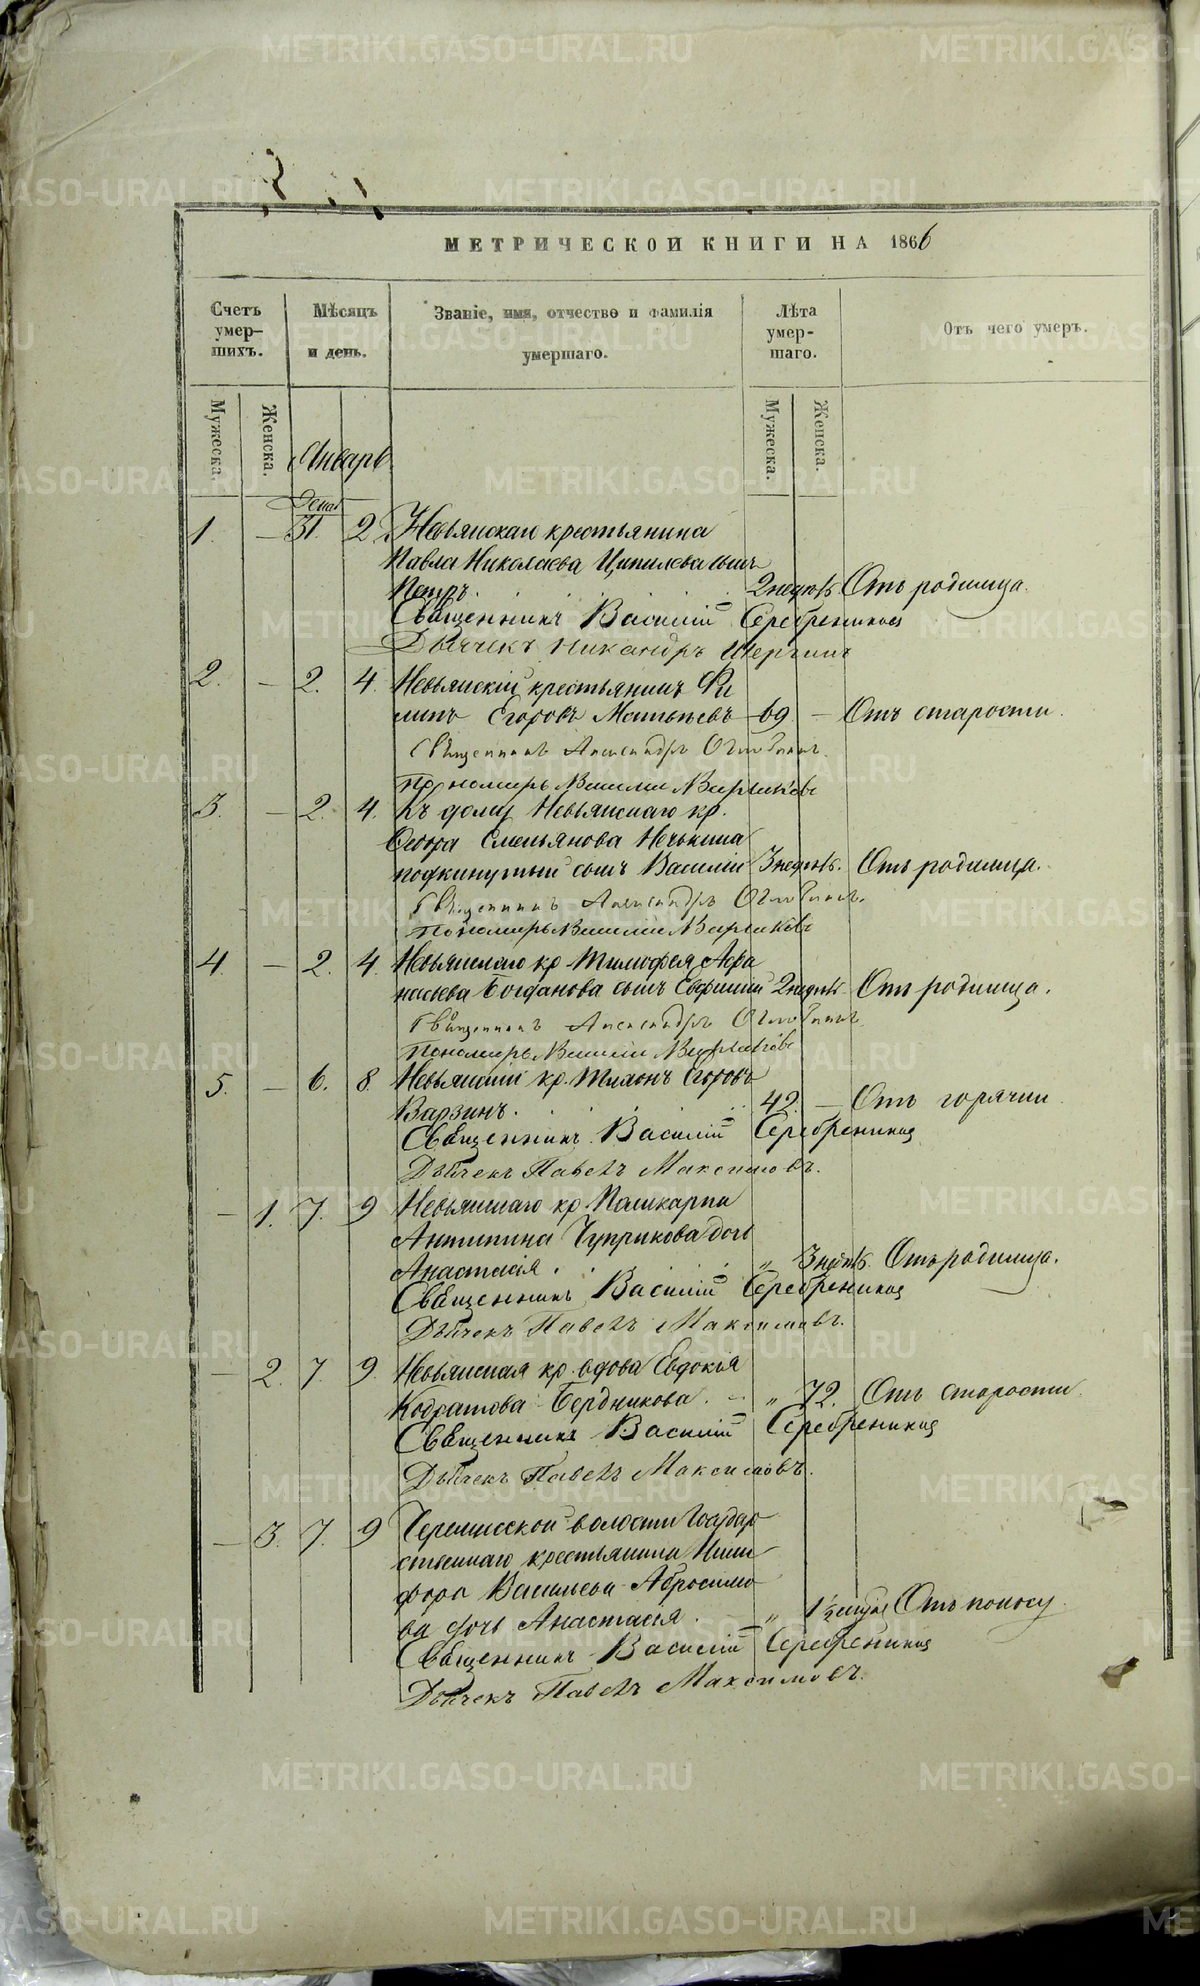 МЕТРИЧЕСКОЙ КНИГИ НА 1866
Счетъ умер-шихъ.
Мѣсяцъ и день.
Званіе, имя, отчество и фамилія умершаго.
Лѣта умер-шаго.
Отъ чего умеръ.
Мужеска.
Женска.
Январь
Мужеска.
Женска.
Декаб
1. — 31. 2 Невьянскаго крестьянина
Павла Николаева сынъ
Петръ. 2 недѣль. Отъ родимца.
Священникъ Василій Серебрениковъ
Дьячекъ Никандръ
2. — 2. 4. Невьянскій крестьянинъ Фи
липъ Егоровъ Матвѣевъ 69 — Отъ старости.
Священникъ Александръ
Пономарь Василій
3. — 2. 4. Къ дому Невьянскаго кр.
Емельянова
подкинутый сынъ Василій 3 недѣль. Отъ родимца.
Священникъ Александръ
Пономарь Василій
4. — 2. 4. Невьянскаго кр. Тимофея Афа
насьева Богданова сынъ Евфимій 2 недѣль Отъ родимца.
Священникъ Александръ
Пономарь Василій
5. — 6. 8. Невьянскій кр. Егоровъ
Варзинъ. 42. — Отъ горячки
Священникъ Василій Серебрениковъ
Дьячекъ Павелъ Максимовъ.
— 1. 7. 9 Невьянскаго кр. Поликарпа
Антипина Чуприкова дочь
Анастасія. „ 3 недѣль. Отъ родимца.
Священникъ Василій Серебрениковъ
Дьячекъ Павелъ Максимовъ.
— 2. 7. 9. Невьянская кр. вдова Евдокія
Кодратова Бердникова. — „ 72. Отъ старости.
Священникъ Василій Серебрениковъ
Дьячекъ Павелъ Максимовъ.
— 3. 7. 9 Черемисской волости Государ
ственнаго крестьянина Ники
фора Васильева Абросимо
ва дочь Анастасія. „ 1½ Отъ поносу.
Священникъ Василій Серебрениковъ
Дьячекъ Павелъ Максимовъ.
METRIKI.GASO-URAL.RU